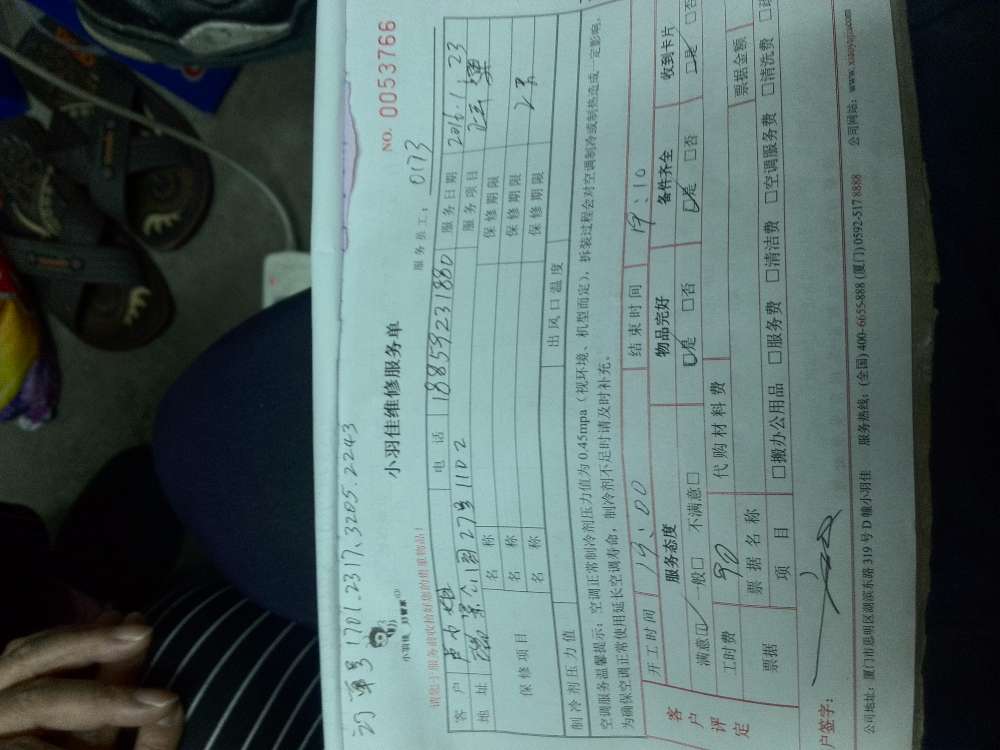 订单号 1701.2317、3205.2243
小羽佳 好管家
小羽佳维修服务单
NO. 0053766
请您于服务前收拾好您的贵重物品!
服务员工: 0173
客户 卢小姐 电话 18859231880 服务日期 2016.1.23
地址 公园27号1102 服务项目
保修项目 名称 保修期限
名称 保修期限
名称 保修期限
制冷剂压力值 出风口温度
空调服务温馨提示:空调正常制冷剂压力值为0.45mpa(视环境、机型而定),拆装过程会对空调制冷或制热造成一定影响,
为确保空调正常使用延长空调寿命,制冷剂不足时请及时补充。
客户评定 开工时间 19:00 结束时间 19:10
服务态度 物品完好 备件齐全 收到卡片
满意☑ 一般□ 不满意□ ☑是 □否 ☑是 □否 □是 □否
工时费 90 代购材料费
票据 票据名称 票据金额
项目 □搬办公用品 □服务费 □清洁费 □空调服务费 □清洗费
户签字:
公司地址:厦门市思明区湖滨东路319号D幢小羽佳 服务热线:(全国) 400-6655-888 (厦门) 0592-517 8888 公司网站:www.xiaoyujia.com